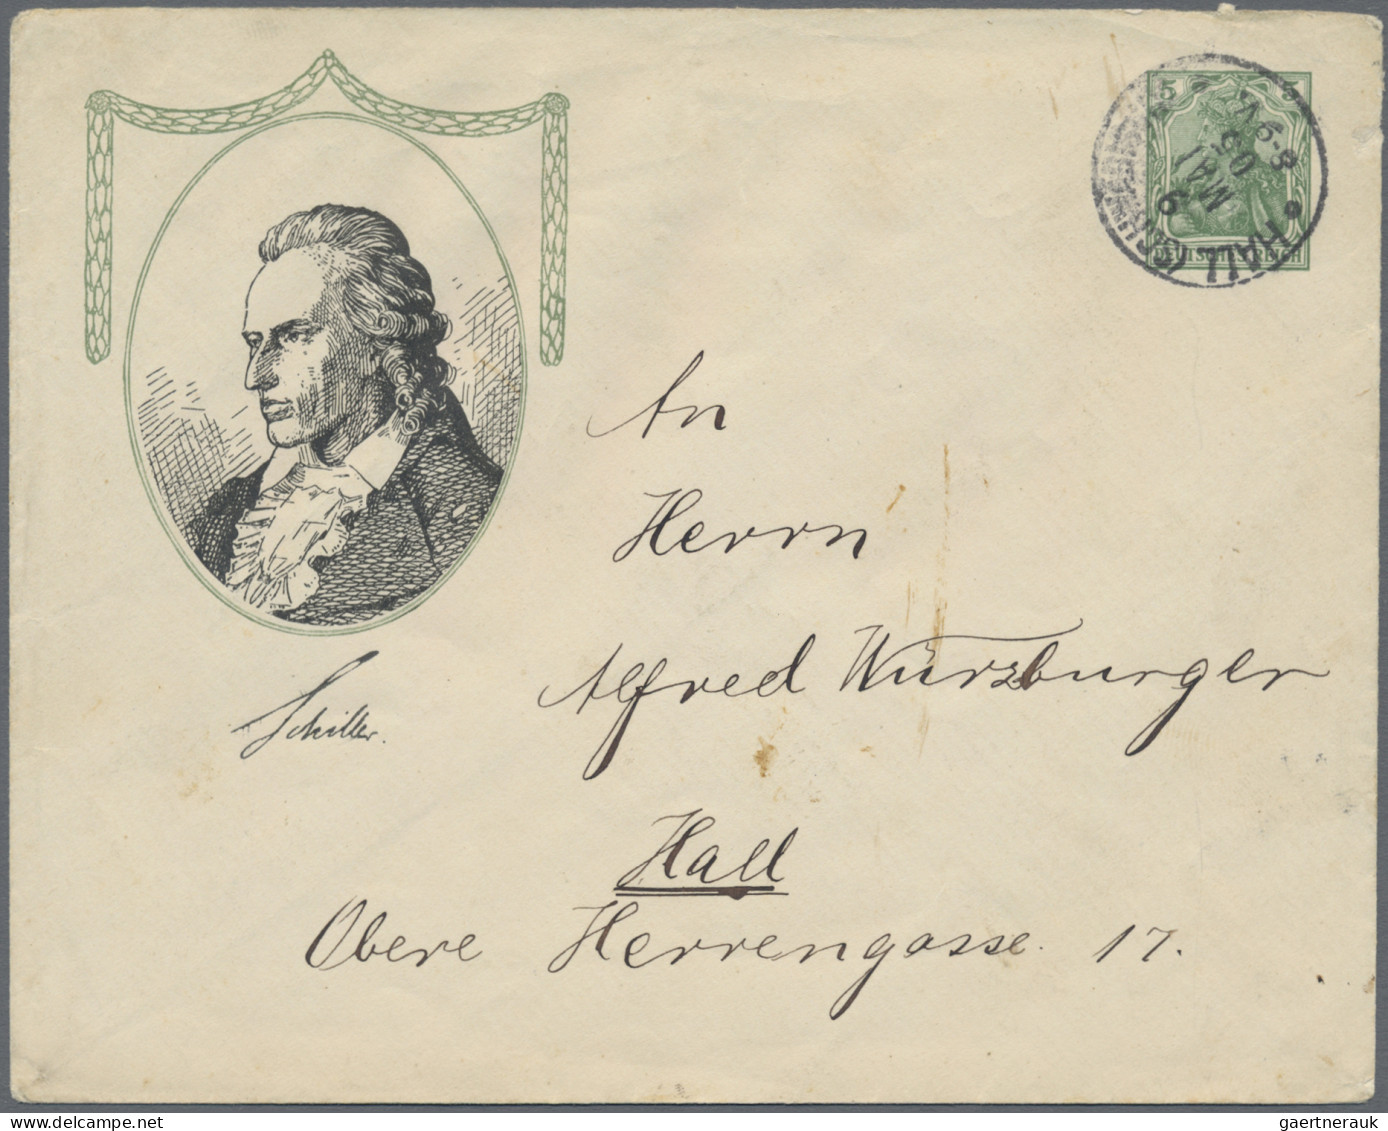 5 5
DEUTSCHES REICH
HALL (SCHWÄB.)
9
MAI
05
8-9 V.
Schiller.
An
Herrn
Alfred Würzburger
Hall
Obere Herrengasse. 17.
gaertnerauk
delcampe.net